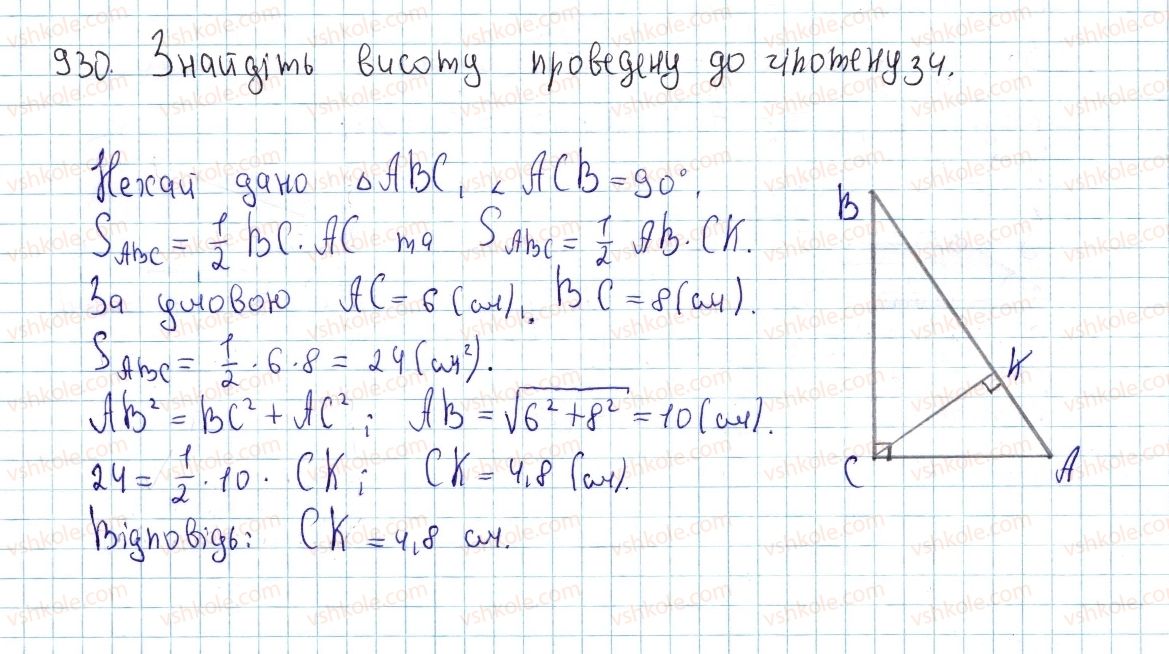 930. Знайдіть висоту проведену до гіпотенузи.
Нехай дано △ABC, ∠ACB = 90°.
S_ABC = 1/2 BC · AC та S_ABC = 1/2 AB · CK.
За умовою AC = 6 (см), BC = 8 (см).
S_ABC = 1/2 · 6 · 8 = 24 (см²).
AB² = BC² + AC²; AB = √(6² + 8²) = 10 (см).
24 = 1/2 · 10 · CK; CK = 4,8 (см).
Відповідь: CK = 4,8 см.
B
K
C
A
vshkole.com